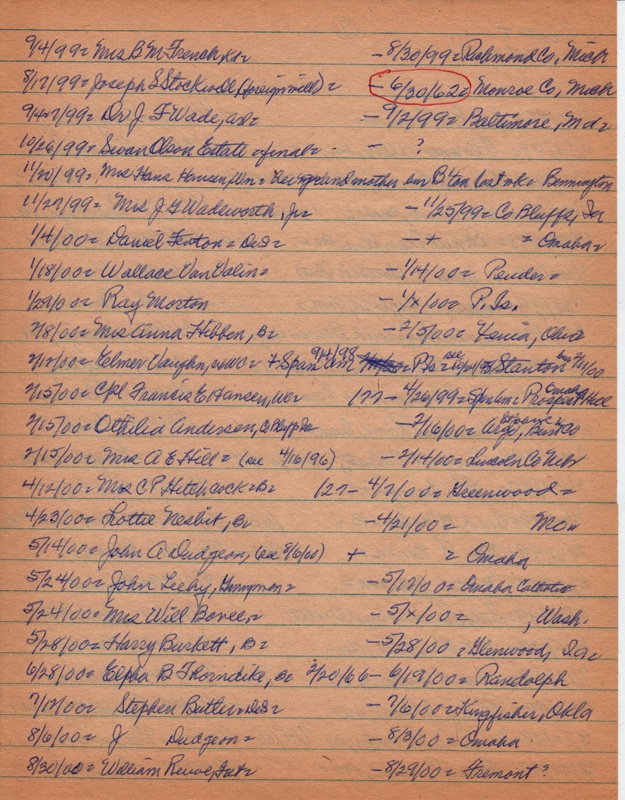 9/4/99 = Mrs B M French,
- 8/30/99 = Richmond Co, Mich
8/17/99 = Joseph S Stockwell, (foreign mills) =
- 6/30/62 = Monroe Co, Mich
9/4+7/99 = Dr J F Wade,
- 9/2/99 = Baltimore, Md =
10/26/99 = Swan Olson Estate = final =
- ?
11/20/99 = Mrs Hans Hansen, = grand mother last Bennington
11/27/99 = Mrs J G Wadsworth, Jr =
- 11/25/99 = Co Bluffs, Ia
1/4/00 = Daniel Fenton = =
- + = Omaha =
1/18/00 = Wallace Van Valin =
- 1/14/00 = Pender =
1/29/00 = Ray Morton
- 1/x/00 = P. Is.
2/8/00 = Mrs Anna Hibben, Br
- 2/5/00 = Xenia, Ohio
2/12/00 = Elmer Vaughn, + Span Am 9/4/98 = P Is = see Stanton 2/11/00
2/15/00 = Cpl Francis E Hansen,
127 - 4/26/99 = Span Am = Prospect Hill Omaha
2/15/00 = Othilia Anderson, Co Bluff Ia
- 2/16/00 = Argo, Burt Co
2/15/00 = Mrs A E Hill = (see 4/16/96)
- 2/14/00 = Lincoln Co Nebr
4/12/00 = Mrs C P Hitchcock = Br =
127 - 4/7/00 = Greenwood =
4/23/00 = Lottie Nesbit, Br
- 4/21/00 = Mo =
5/14/00 = John A Dudgeon, (see 8/6/00)
+ = Omaha
5/24/00 = John Leehy, =
- 5/17/00 = Omaha Catholic
5/24/00 = Mrs Will Bovee, =
- 5/x/00 = , Wash.
5/28/00 = Harry Burkett, Br =
- 5/28/00 = Glenwood, Ia =
6/28/00 = Elpha B Thorndike, Br 2/20/66 - 6/19/00 = Randolph
7/12/00 Stephen Butler =
- 7/6/00 = Kingfisher, Okla
8/6/00 = J Dudgeon =
- 8/3/00 = Omaha
8/30/00 = William
- 8/29/00 = Fremont?